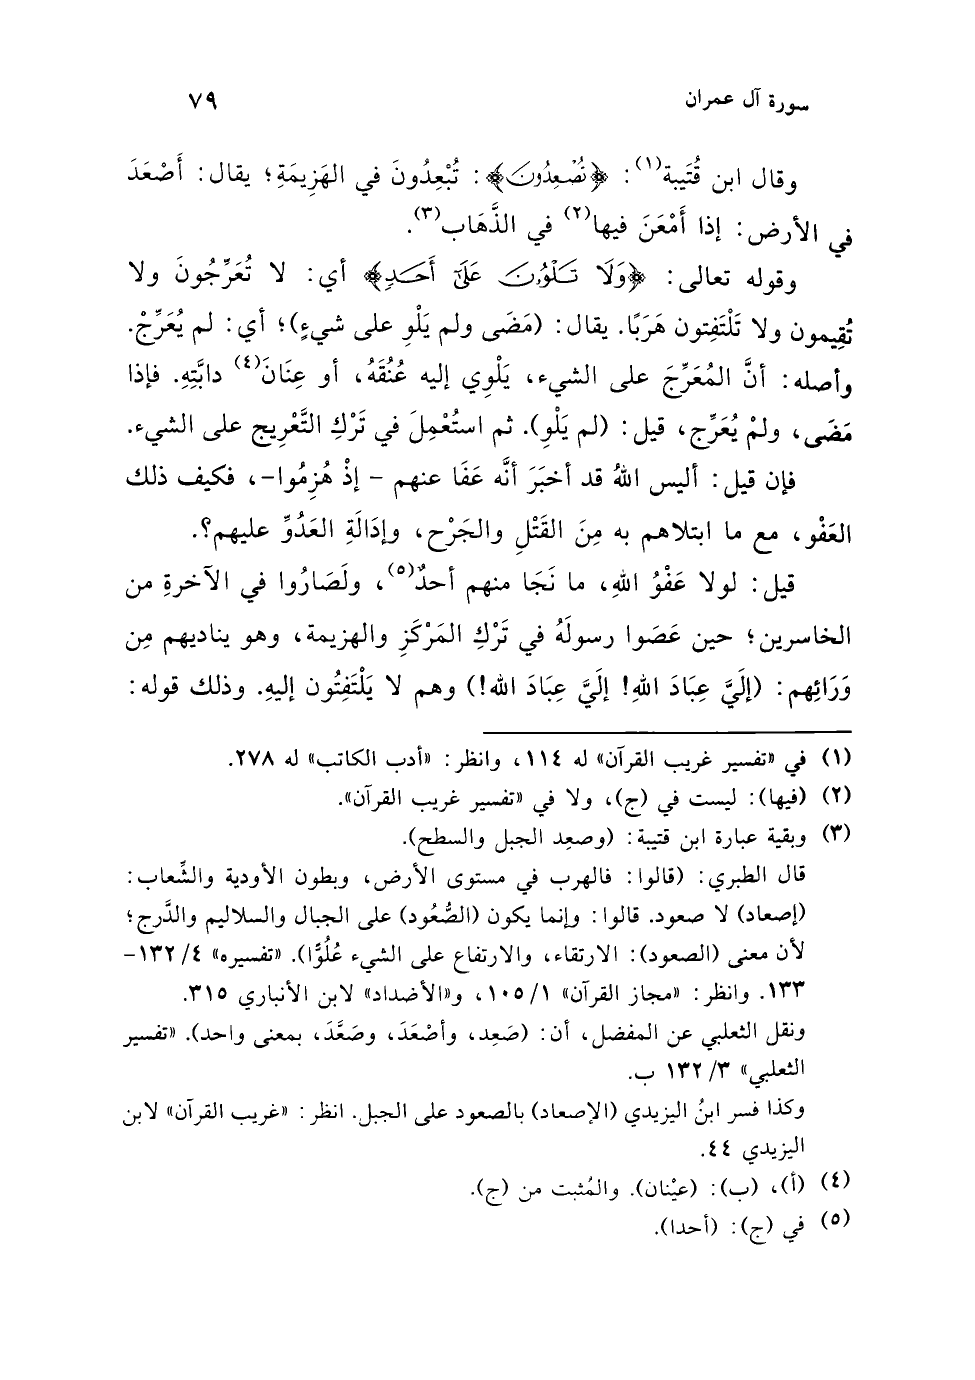 سورة آل عمران ٧٩
وقال ابن قُتَيبة(١): ﴿تُصْعِدُونَ﴾: تُبْعِدُونَ في الهَزِيمَةِ؛ يقال: أَصْعَدَ
في الأرض: إذا أَمْعَنَ فيها(٢) في الذَّهَاب(٣).
وقوله تعالى: ﴿وَلَا تَلْوُونَ عَلَىٰ أَحَدٍ﴾ أي: لا تُعَرِّجُونَ ولا
تُقِيمون ولا تَلْتَفِتون هَرَبًا. يقال: (مَضَى ولم يَلْوِ على شيءٍ)؛ أي: لم يُعَرِّجْ.
وأصله: أنَّ المُعَرِّجَ على الشيء، يَلْوِي إليه عُنُقَهُ، أو عِنَانَ(٤) دابَّتِهِ. فإذا
مَضَى، ولمْ يُعَرِّج، قيل: (لم يَلْوِ). ثم استُعْمِلَ في تَرْكِ التَّعْرِيج على الشيء.
فإن قيل: أليس اللهُ قد أخبَرَ أنَّه عَفَا عنهم - إذْ هُزِمُوا-، فكيف ذلك
العَفْو، مع ما ابتلاهم به مِنَ القَتْلِ والجَرْح، وإدَالَةِ العَدُوِّ عليهم؟.
قيل: لولا عَفْوُ اللهِ، ما نَجَا منهم أحدٌ(٥)، ولَصَارُوا في الآخرةِ من
الخاسرين؛ حين عَصَوا رسولَهُ في تَرْكِ المَرْكَزِ والهزيمة، وهو يناديهم مِن
وَرَائِهم: (إلَيَّ عِبَادَ اللهِ! إلَيَّ عِبَادَ الله!) وهم لا يَلْتَفِتُون إليهِ. وذلك قوله:
(١) في «تفسير غريب القرآن» له ١١٤، وانظر: «أدب الكاتب» له ٢٧٨.
(٢) (فيها): ليست في (ج)، ولا في «تفسير غريب القرآن».
(٣) وبقية عبارة ابن قتيبة: (وصعِد الجبل والسطح).
قال الطبري: (قالوا: فالهرب في مستوى الأرض، وبطون الأودية والشِّعاب:
(إصعاد) لا صعود. قالوا: وإنما يكون (الصُّعُود) على الجبال والسلاليم والدَّرج؛
لأن معنى (الصعود): الارتقاء، والارتفاع على الشيء عُلُوًّا). «تفسيره» ٤/ ١٣٢-
١٣٣. وانظر: «مجاز القرآن» ١/ ١٠٥، و«الأضداد» لابن الأنباري ٣١٥.
ونقل الثعلبي عن المفضل، أن: (صَعِد، وأصْعَدَ، وصَعَّدَ، بمعنى واحد). «تفسير
الثعلبي» ٣/ ١٣٢ ب.
وكذا فسر ابنُ اليزيدي (الإصعاد) بالصعود على الجبل. انظر: «غريب القرآن» لابن
اليزيدي ٤٤.
(٤) (أ)، (ب): (عيْنان). والمُثبت من (ج).
(٥) في (ج): (أحدا).